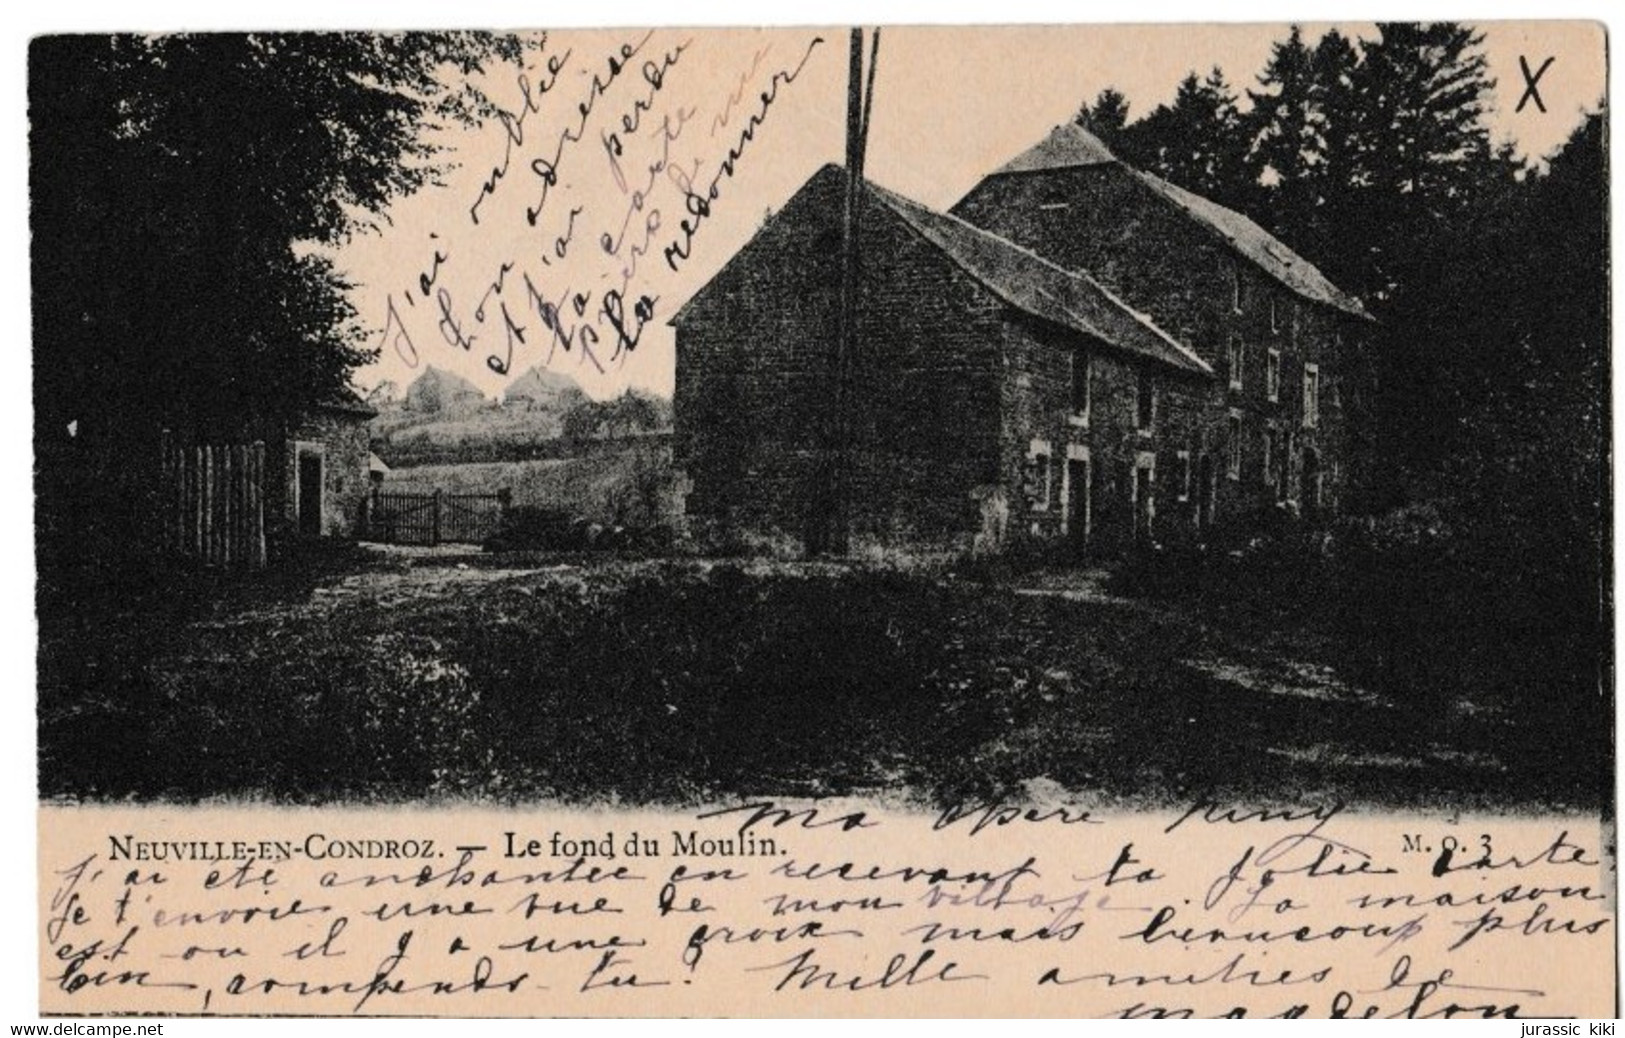 J'ai oublié
ton adresse
et j'ai perdu
ta carte
prière de me
la redonner
X
NEUVILLE-EN-CONDROZ. — Le fond du Moulin.
M. O. 3
ma chère
J'ai été anchantée en recevant ta jolie carte
Je t'envoie une vue de mon village. La maison
est ou il y a une croix mais beaucoup plus
loin, comprends-tu? Mille amitiés de
Magdelon
jurassic kiki
www.delcampe.net